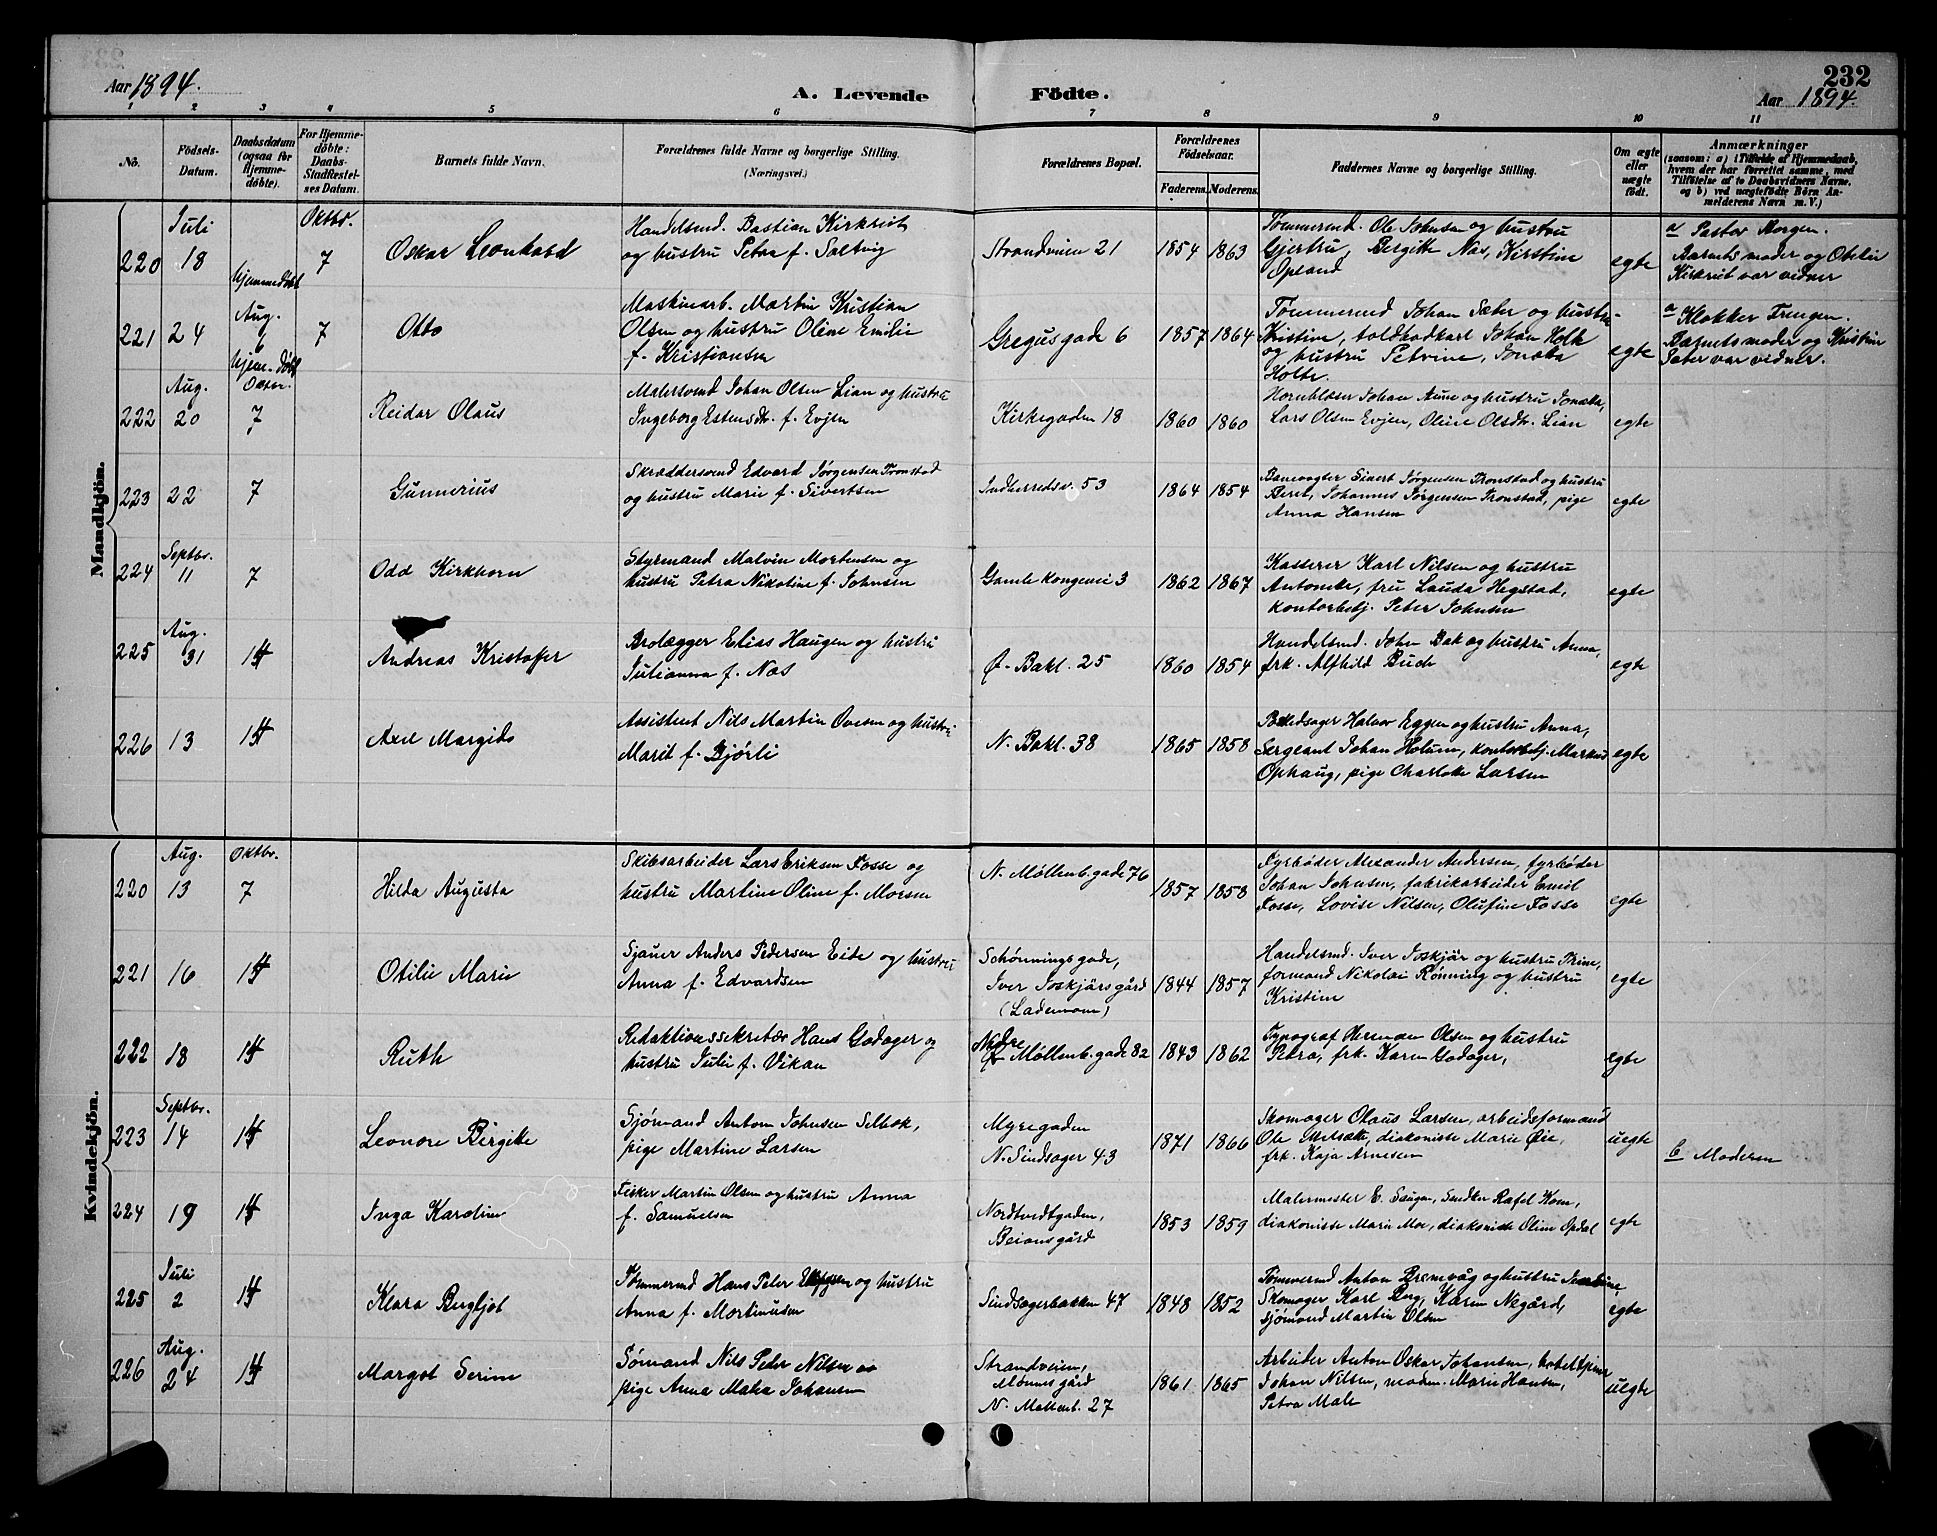 232
Aar 1894.
A. Levende Födte.
Aar 1894.
1 2 3 4 5 6 7 8 9 10 11
No.
Födsels-Datum.
Daabsdatum (ogsaa for Hjemmedöbte).
For Hjemmedöbte: Daabs-Stadfæstelses Datum.
Barnets fulde Navn.
Forældrenes fulde Navne og borgerlige Stilling. (Næringsvei.)
Forældrenes Bopæl.
Forældrenes Födselsaar.
Faderens. Moderens.
Faddernes Navne og borgerlige Stilling.
Om ægte eller uægte födt.
Anmærkninger
(saasom: a) i Tilfælde af Hjemmedaab, hvem der har forrettet samme, med Tilföielse af to Daabsvidners Navne, og b) ved uægtefödte Börn Anmelderens Navn m. V.)
Mandkjön.
220 Juli 18 hjemmedöbt Oktbr. 7 Oskar Leonhard
Handelsmd. Bastian Kirkreit
og hustru Petra f. Saltvig
Strandveien 21 1854 1863
Tømmermd. Ole Johnsen og hustru
Gjertru, Bergitte Næs, Kirstine
Opland
egte
a Pastor Horgen.
Barnets moder og Otelie
Kirkreit var vidner
221 24 Aug. 6 hjem-döbt 7 Otto
Maskinarb. Martin Kristian
Olsen og hustru Oline Emilie
f. Kristiansen
Gregusgade 6 1857 1864
Tømmermd Johan Sæter og hustru
Kristine, toldbodkarl Johan Holte
og hustru Petrine, Jonetta
Holte.
egte
a Klokker Trengen.
Barnets moder og Kristine
Sæter var vidner.
222 Aug. 20 7 Reidar Olaus
Malersvend Johan Olsen Lian og hustru
Ingeborg Estensdtr. f. Evjen
Kirkegaden 18 1860 1860
Hornblæser Johan Aune og hustru
Lars Olsen Evjen, Oline Olsdtr. Lian
egte
223 22 7 Gunnerius
Skræddersvend Edvard Jørgensen Tronstad
og hustru Marie f. Sivertsen
Indherredsv. 53 1864 1854
Banevogter Sivert Jørgensen Tronstad og hustru
Beret, Johannes Jørgensen Tronstad, pige
Anna Hansen
egte
224 Septbr. 11 7 Odd Kirkhorn
Styrmand Malvin Mortensen og
hustru Petra Nikoline f. Johnsen
Gamle kongevei 3 1862 1867
Kasserer Karl Nilsen og hustru
Antonette, fru Lauda Hegstad,
kontorbetj. Peter Johnsen
egte
225 Aug. 31 14 Andreas Kristoffer
Brolægger Elias Haugen og hustru
Julianna f. Næs
Ø. Bakl. 25 1860 1854
Handelsmd. John Bak og hustru Anna,
frk. Alfhild Buch
egte
226 13 14 Axel Margido
Assistent Nils Martin Ovesen og hustru
Marit f. Bjørli
N. Bakl. 38 1865 1858
Halvor Eggen og hustru Anna,
Sergeant Johan Holum, kontorbetj. Markus
Ophaug, pige Charlotte Larsen
egte
Kvindekjön.
220 Aug. 13 Oktbr. 7 Hilda Augusta
Skibsarbeider Lars Eriksen Fosse og
hustru Martine Oline f. Moesen
N. Møllenb.gade 76 1857 1858
Fyrbøder Alexander Andersen, fyrbøder
Johan Johnsen, fabrikarbeider Emil
Fosse, Lovise Nilsen, Olufine Fosse
egte
221 16 14 Otilie Marie
Sjauer Anders Pedersen Eide og hustru
Anna f. Edvardsen
Schønningsgade,
Iver Joskjärsgård
(Lademoen)
1844 1857
Handelsmd. Iver Joskjär og hustru Trine,
formand Nikolai Rønning og hustru
Kristine
egte
222 18 14 Ruth
Redaktionssekretær Hans Godager og
hustru Julie f. Vikan
Nedre
Møllenb.gade 82 1843 1862
Typograf Herman Olsen og hustru
Petra, frk. Karen Godager,
egte
223 Septbr. 14 14 Leonore Birgitte
Sjømand Anton Johnsen Selbek,
pige Martine Larsen
Myregaden
N. Sindsager 43 1871 1866
Skomager Olaus Larsen, arbeidsformand
Ole, diakonisse Marie Øie,
frk. Kaja Arnesen
uegte
b Moderen
224 19 14 Inga Karoline
Fisker Martin Olsen og hustru Anna
f. Samuelsen
Nordtvedtgaden,
Beiansgård
1853 1859
Malermester E. Saugen, Snedker Rafel Kom,
diakonisse Marie Moe, diakonisse Oline Opdal
egte
225 Juli 2 14 Klara Bergljot
Tømmermd Hans Peter og hustru
Anna f. Mortinusen
Sindsagerbakken 47 1848 1852
Tømmermd Anton Bremvåg og hustru
Skomager Karl Berg, Karen Negård,
sjømand Martin Olsen
egte
226 Aug. 24 14 Margot Serine
Sømand Nils Peder Nilsen og
pige Anna Malia Johansen
Strandveien,
Mønnesgård
N. Møllenb. 27
1861 1865
Arbeider Anton Oskar Johansen,
Johan Nilsen, madm. Marie Hansen,
Petra Male
uegte